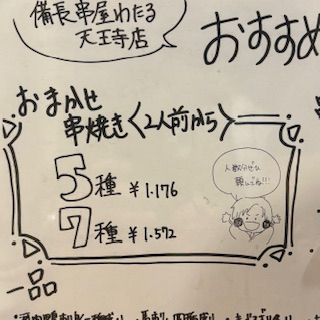 備長串屋わたる
天王寺店
おすすめ
おまかせ
串焼き〈2人前から〉
5種 ¥1.176
7種 ¥1.572
人数分でも
頼んでね!!
一品